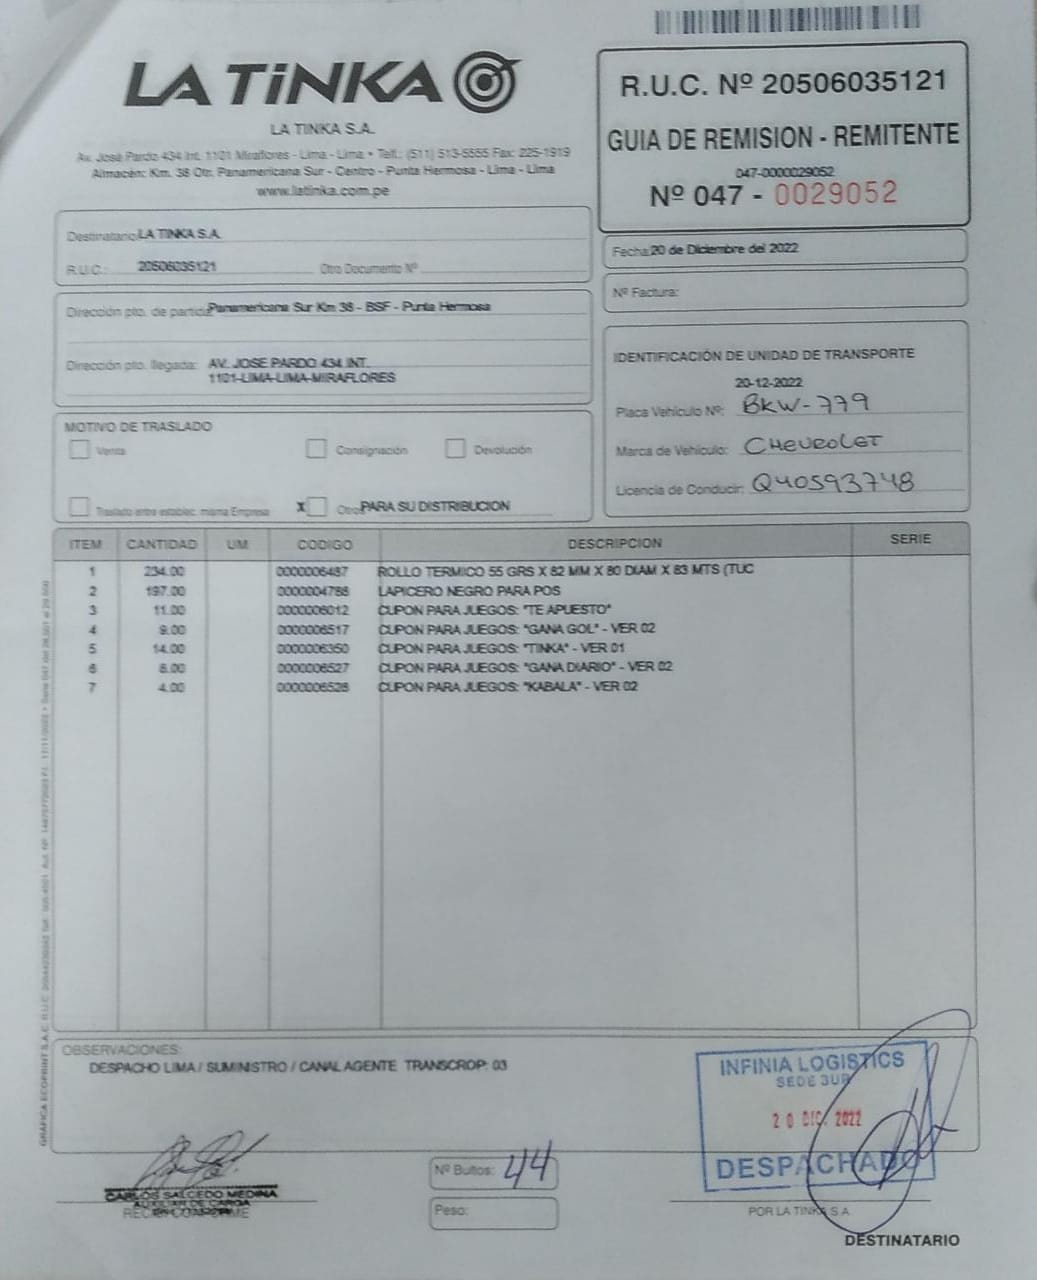 LA TiNKA
LA TINKA S.A.
Av. José Pardo 434 Int. 1101 Miraflores - Lima - Lima • Telf.: (511) 513-5555 Fax: 225-1919
Almacén: Km. 38 Otr. Panamericana Sur - Centro - Punta Hermosa - Lima - Lima
www.latinka.com.pe
R.U.C. Nº 20506035121
GUIA DE REMISION - REMITENTE
047-0000029052
Nº 047 - 0029052
Destinatario: LA TINKA S.A.
R.U.C.: 20506035121 Otro Documento Nº
Fecha: 20 de Diciembre del 2022
Nº Factura:
Dirección pto. de partida: Panamericana Sur Km 38 - BSF - Punta Hermosa
Dirección pto. llegada: AV. JOSE PARDO 434 INT.
1101-LIMA-LIMA-MIRAFLORES
IDENTIFICACIÓN DE UNIDAD DE TRANSPORTE
20-12-2022
Placa Vehículo Nº: BKW-779
Marca de Vehículo: CHEVROLET
Licencia de Conducir: Q40593748
MOTIVO DE TRASLADO
Venta Consignación Devolución
Traslado entre establec. misma Empresa X Otros PARA SU DISTRIBUCION
ITEM CANTIDAD UM CODIGO DESCRIPCION SERIE
1 234.00 0000006487 ROLLO TERMICO 55 GRS X 82 MM X 80 DIAM X 83 MTS (TUC
2 197.00 0000004788 LAPICERO NEGRO PARA POS
3 11.00 0000006012 CUPON PARA JUEGOS: "TE APUESTO"
4 9.00 0000006517 CUPON PARA JUEGOS: "GANA GOL" - VER 02
5 14.00 0000006350 CUPON PARA JUEGOS: "TINKA" - VER 01
6 8.00 0000006527 CUPON PARA JUEGOS: "GANA DIARIO" - VER 02
7 4.00 0000006528 CUPON PARA JUEGOS: "KABALA" - VER 02
OBSERVACIONES:
DESPACHO LIMA / SUMINISTRO / CANAL AGENTE TRANSCROP: 03
INFINIA LOGISTICS
SEDE SUR
20 DIC. 2022
DESPACHADO
CARLOS SALCEDO MEDINA
AUXILIAR DE CARGA
RECIBI CONFORME
Nº Bultos: 44
Peso:
POR LA TINKA S.A.
DESTINATARIO